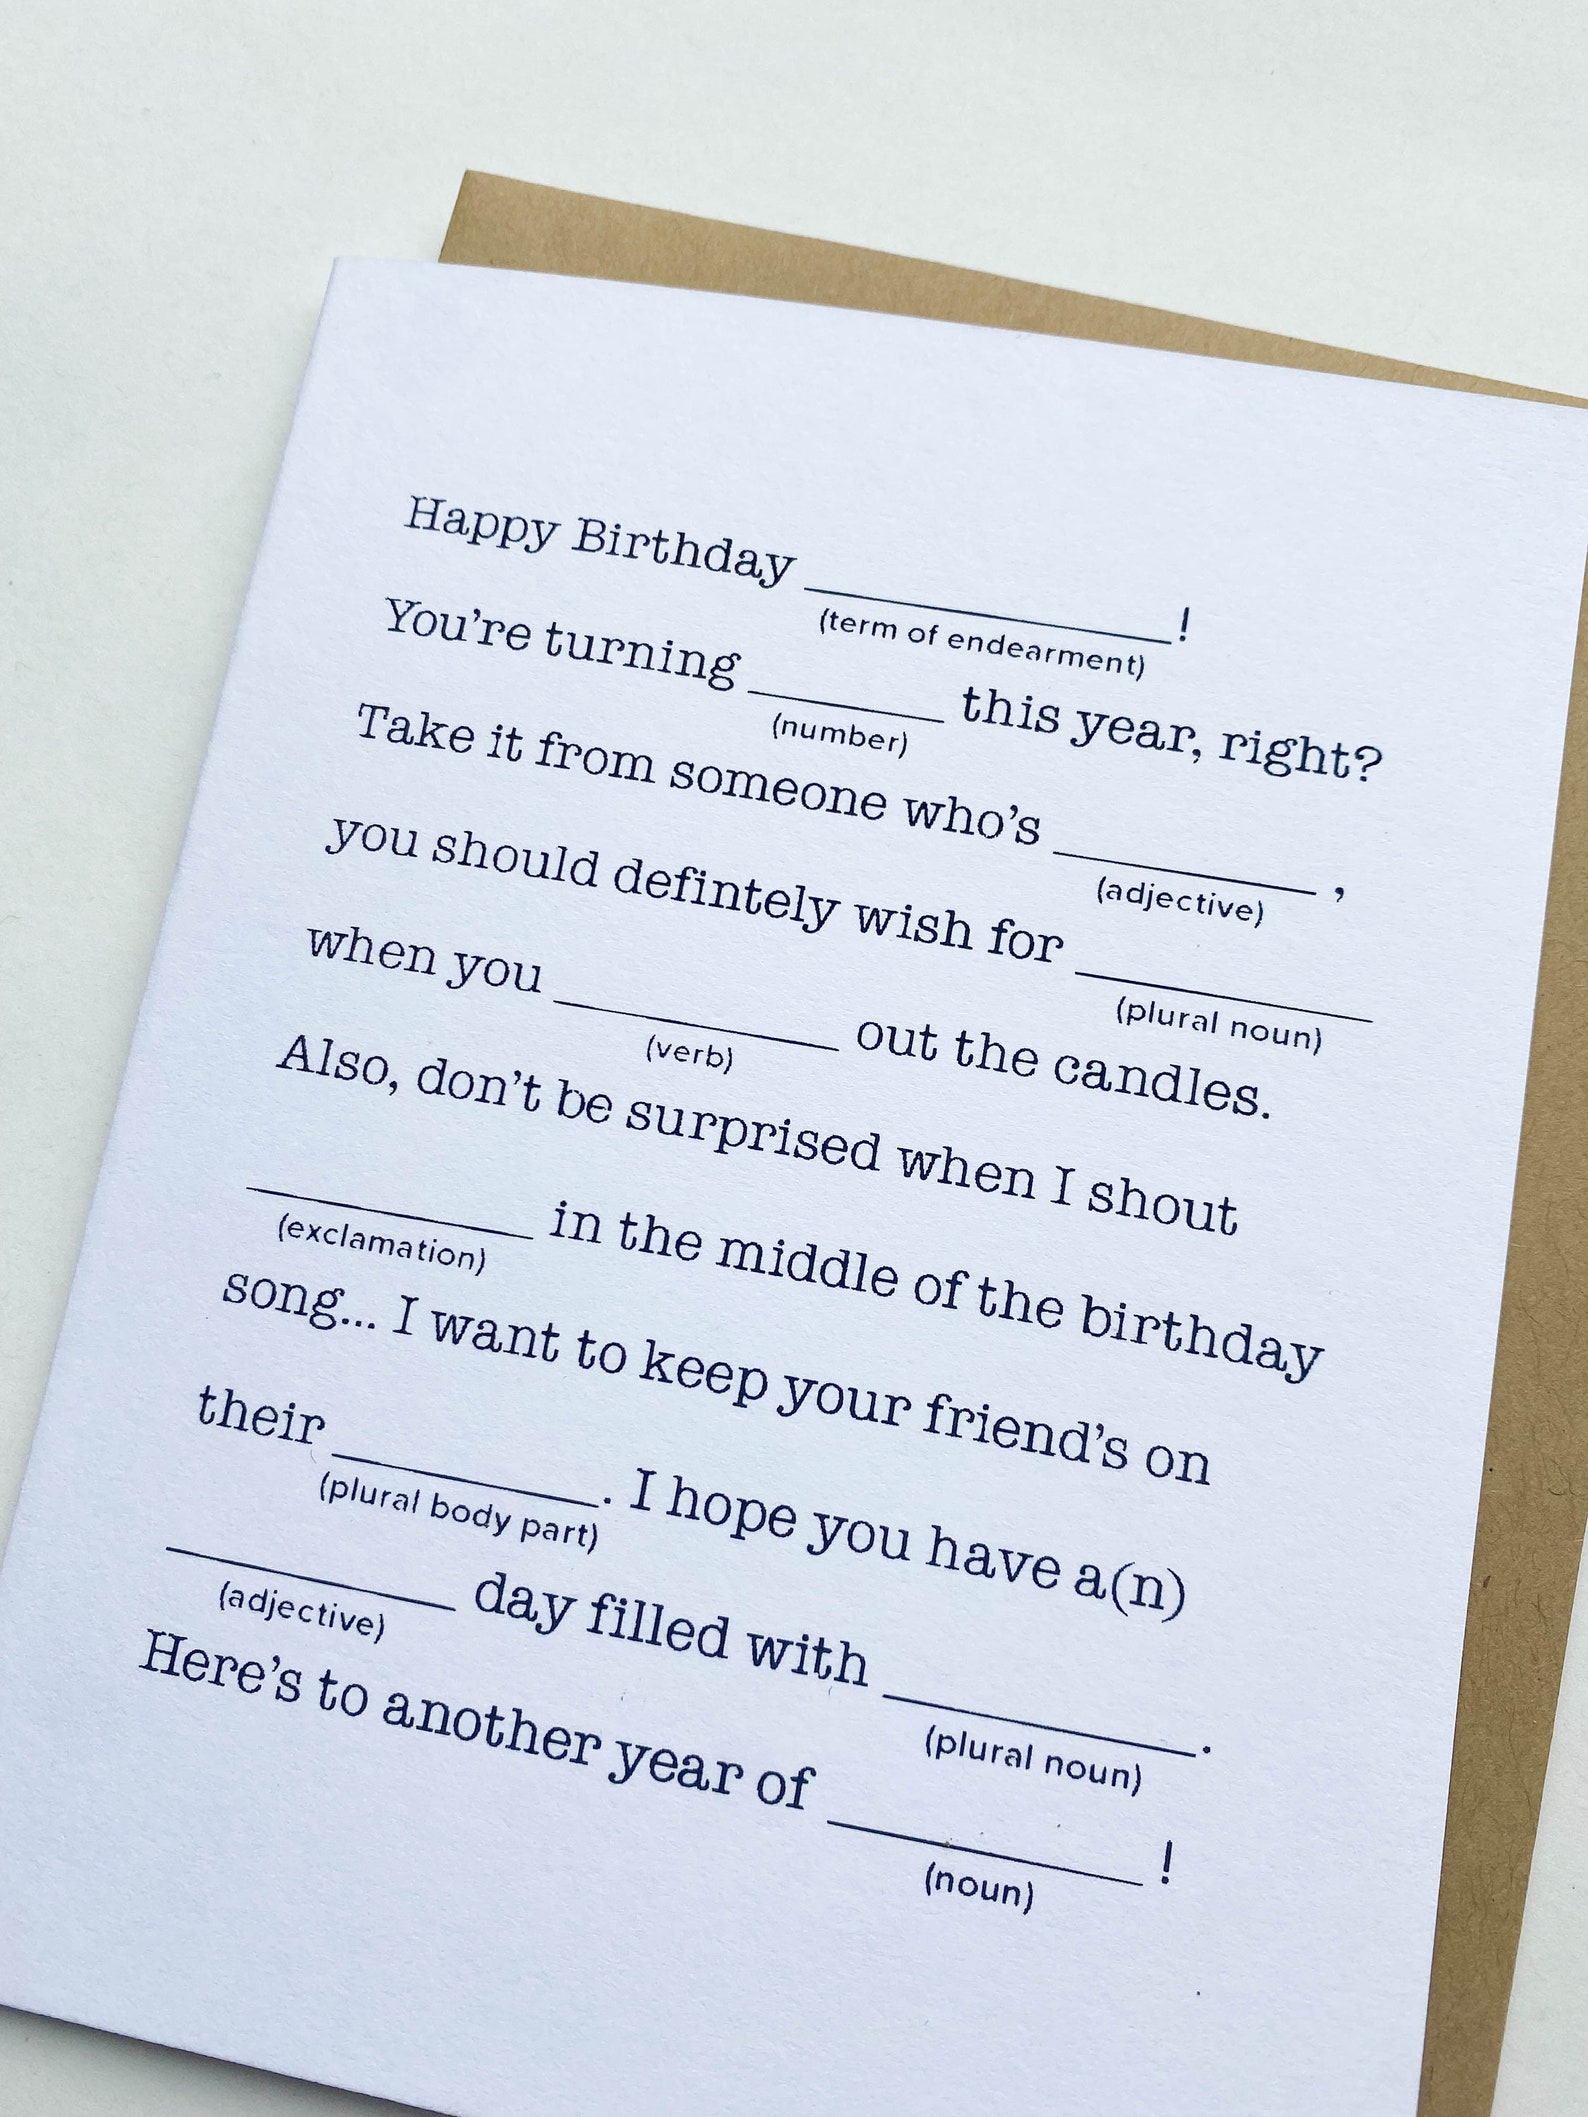 Happy Birthday ____________!
(term of endearment)
You're turning ______ this year, right?
(number)
Take it from someone who's ________ ,
(adjective)
you should defintely wish for _________
(plural noun)
when you _________ out the candles.
(verb)
Also, don't be surprised when I shout
_________ in the middle of the birthday
(exclamation)
song... I want to keep your friend's on
their ________. I hope you have a(n)
(plural body part)
_________ day filled with __________.
(adjective) (plural noun)
Here's to another year of __________ !
(noun)